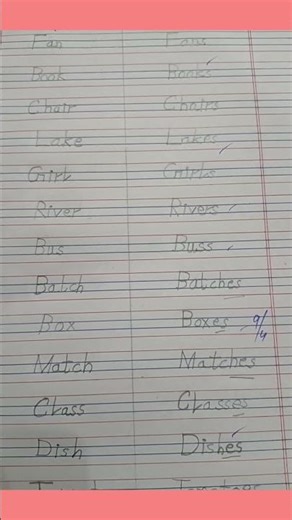 Fan Fans
Book Books
Chair Chairs
Lake Lakes
Girl Girls
River Rivers
Bus Buss
Batch Batches
Box Boxes 9/4
Match Matches
Class Classes
Dish Dishes